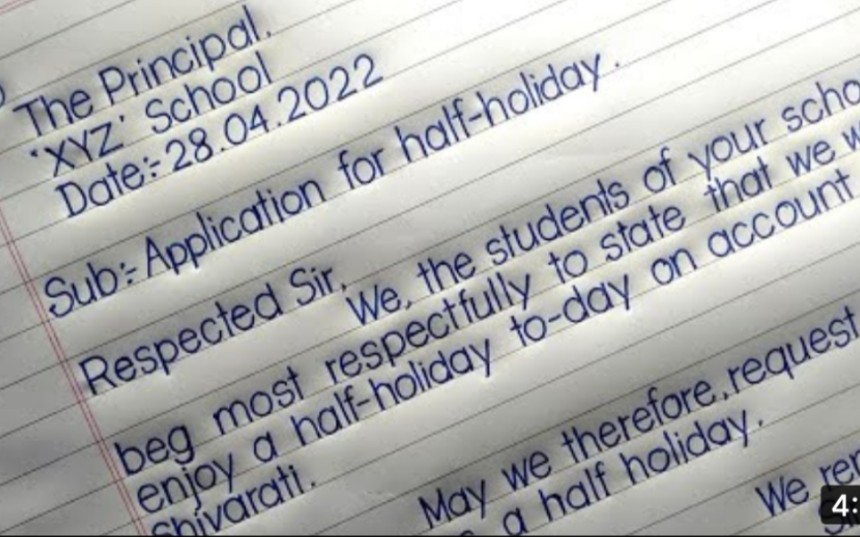 The Principal.
'XYZ' School
Date:- 28.04.2022
Sub:- Application for half-holiday.
Respected Sir,
We, the students of your
beg most respectfully to state that we
enjoy a half-holiday to-day on account
Shivarati.
May we therefore, request
a half holiday.
We
4: